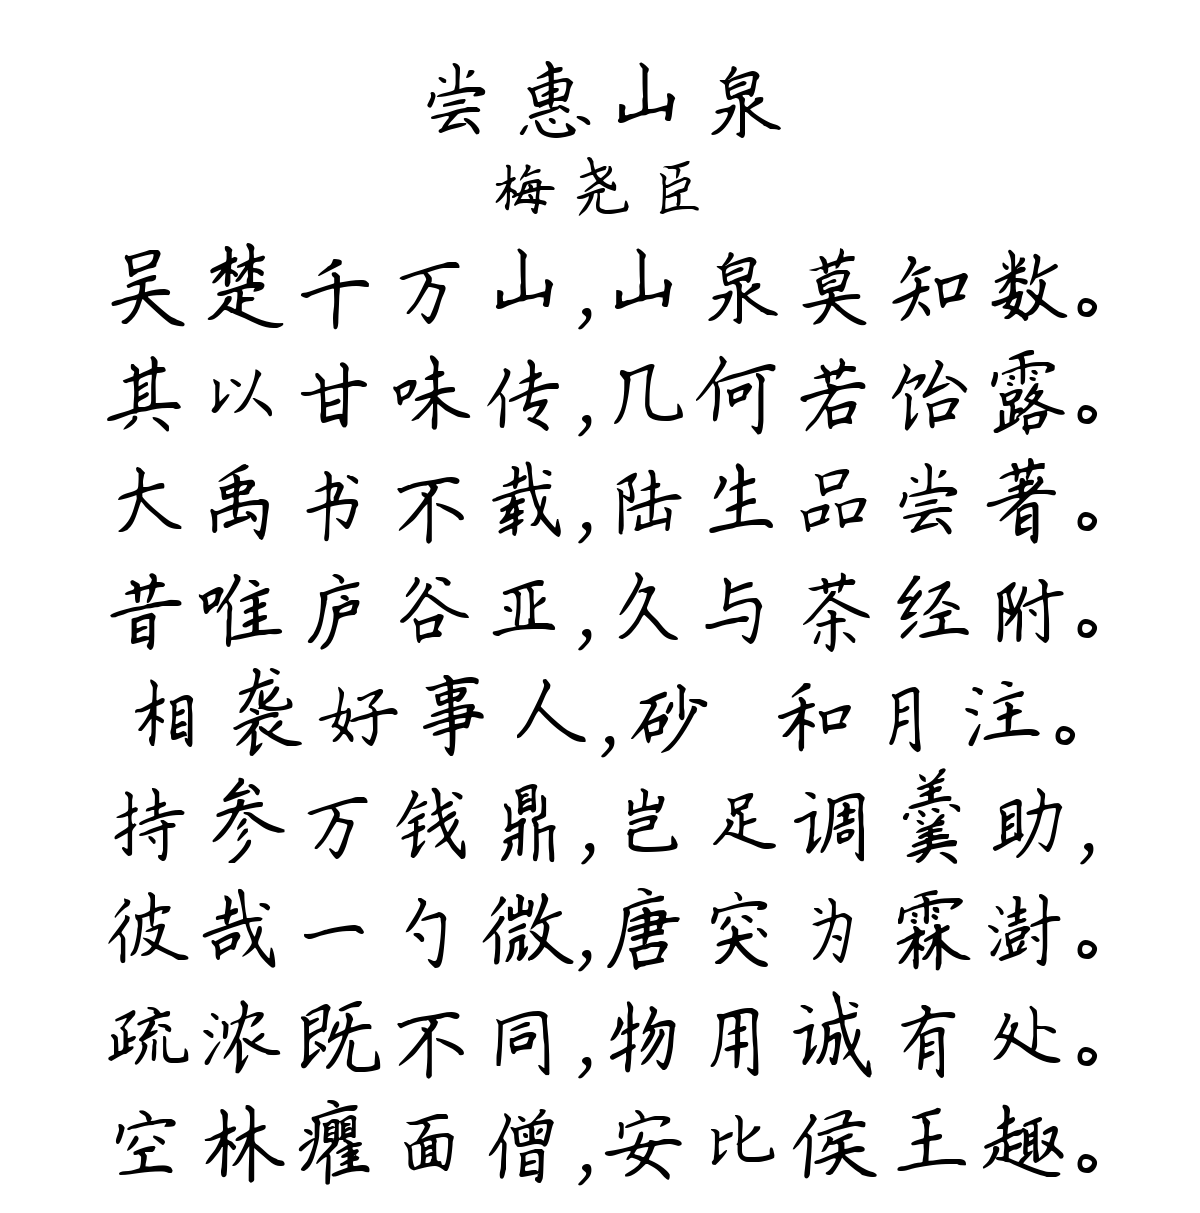 尝惠山泉
梅尧臣
吴楚千万山,山泉莫知数。
其以甘味传,几何若饴露。
大禹书不载,陆生品尝著。
昔唯庐谷亚,久与茶经附。
相袭好事人,砂 和月注。
持参万钱鼎,岂足调羹助,
彼哉一勺微,唐突为霖澍。
疏浓既不同,物用诚有处。
空林癯面僧,安比侯王趣。